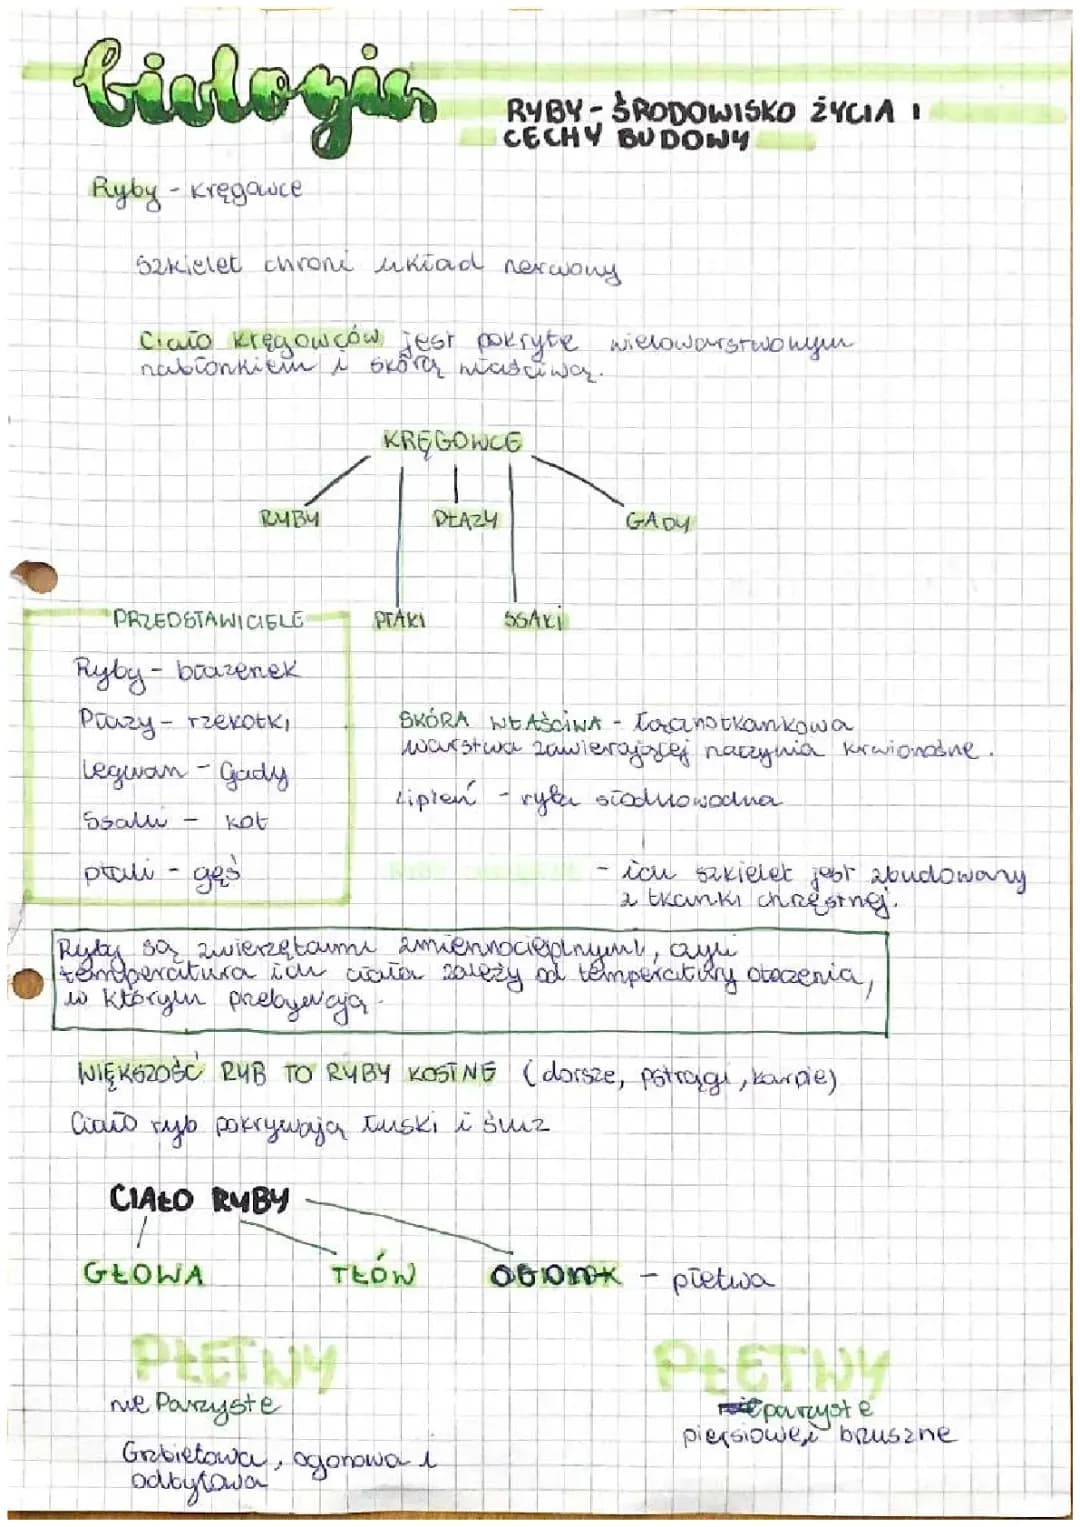 biologia
RYBY - ŚRODOWISKO ŻYCIA I
CECHY BUDOWY
Ryby - kręgowce
Szkielet chroni układ nerwowy
Ciało kręgowców jest pokryte wielowarstwowym
nabłonkiem i skórą właściwą.
KRĘGOWCE
RYBY
PŁAZY
GADY
PTAKI
SSAKI
PRZEDSTAWICIELE
Ryby - błazenek
Płazy - rzekotki
Legwan - Gady
Ssaki - kot
ptaki - gęś
SKÓRA WŁAŚCIWA - łącznotkankowa
warstwa zawierającej naczynia krwionośne.
Lipień - ryba słodkowodna
- ich szkielet jest zbudowany
z tkanki chrzęstnej.
Ryby są zwierzętami zmiennocieplnymi, czyli
temperatura ich ciała zależy od temperatury otoczenia,
w którym przebywają.
WIĘKSZOŚĆ RYB TO RYBY KOSTNE (dorsze, pstrągi, karpie)
Ciało ryb pokrywają łuski i śluz
CIAŁO RYBY
GŁOWA
TŁÓW
OGONK - płetwa
PŁETWY
PŁETWY
nie Parzyste
parzyste
piersiowe i brzuszne
Grzbietowa, ogonowa i
odbytowa